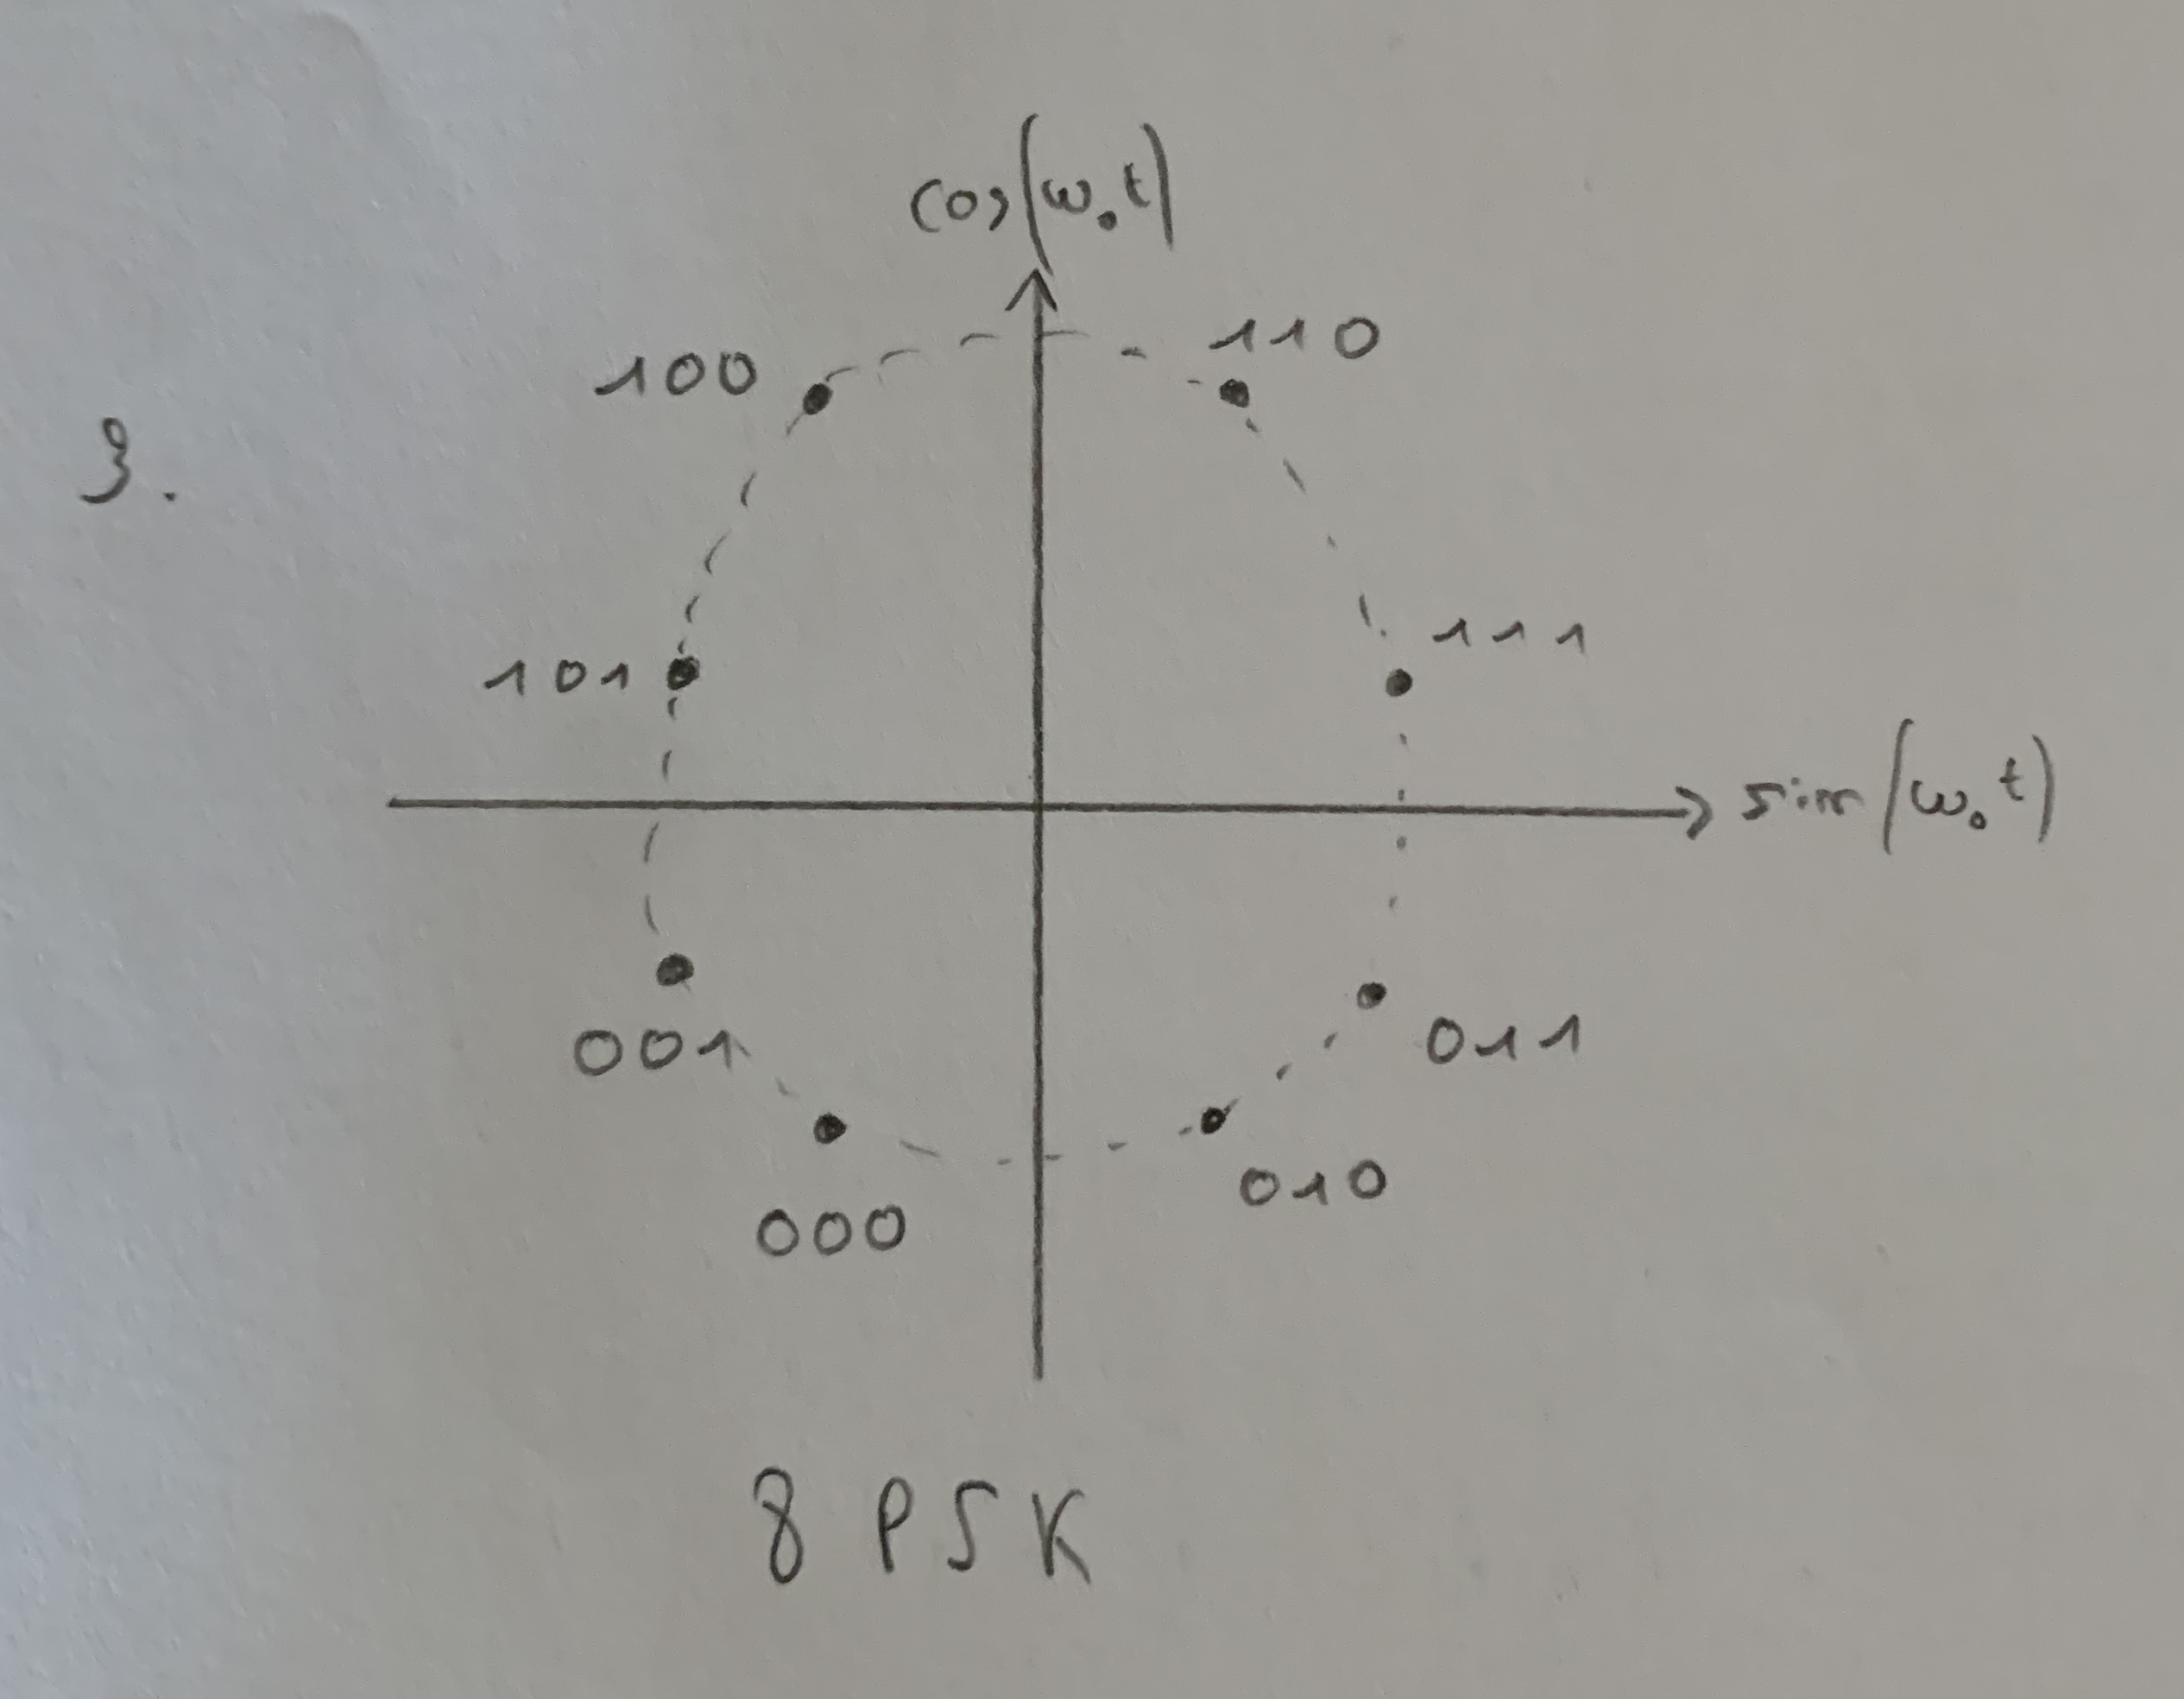 cos(ω₀t)
100
110
3.
101
111
sin(ω₀t)
001
011
000
010
8 PSK